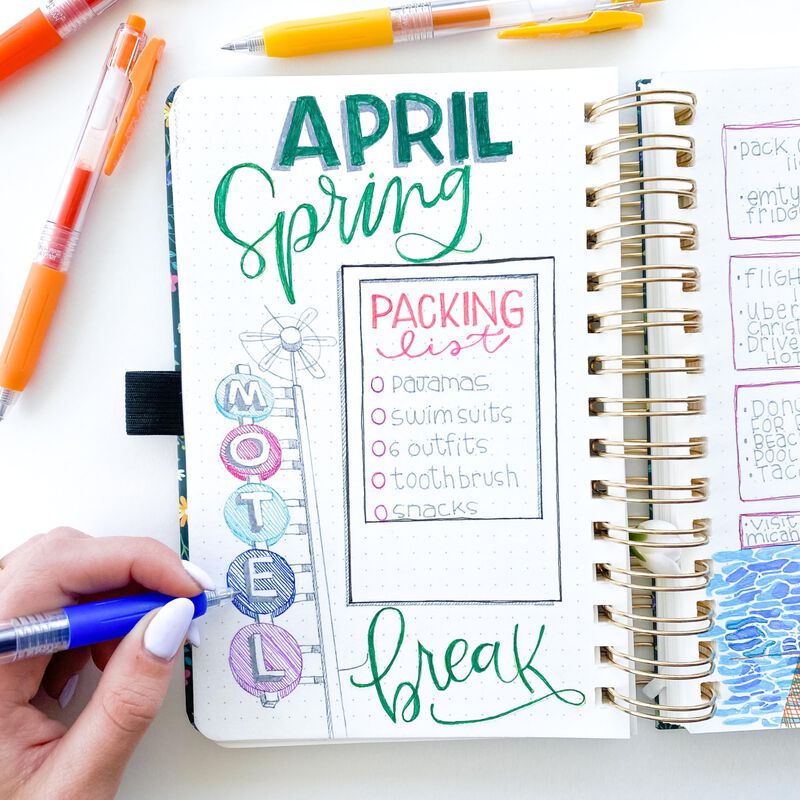 APRIL
Spring
PACKING
list
pajamas
swimsuits
6 outfits
toothbrush
snacks
MOTEL
break
• pack
• emty
FRIDG
• FLIGH
• Uber
Christ
• Drive
HOT
• DON
FOR
• BEAC
• POOL
• TAC
VISIT
micah